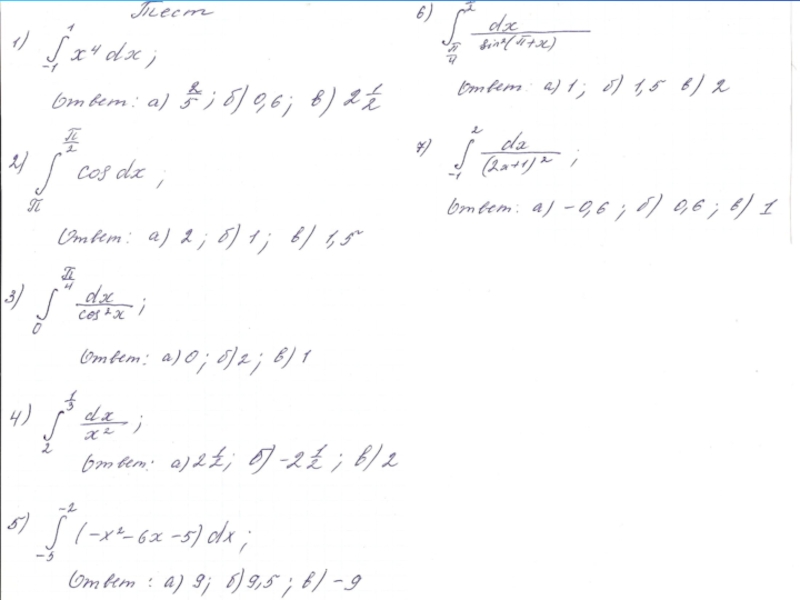 Тест
1) ∫₋₁¹ x⁴ dx ;
Ответ: а) 2/5 ; б) 0,6 ; в) 2 1/2
2) ∫_π^(π/2) cos dx ;
Ответ: а) 2 ; б) 1 ; в) 1,5
3) ∫₀^(π/4) dx/cos²x ;
Ответ: а) 0 ; б) 2 ; в) 1
4) ∫₂^(1/3) dx/x² ;
Ответ: а) 2 1/2 ; б) -2 1/2 ; в) 2
5) ∫₋₅⁻² (-x²-6x-5) dx ;
Ответ : а) 9; б) 9,5 ; в) -9
6) ∫_(π/4) dx/sin²(π+x)
Ответ: а) 1 ; б) 1,5 в) 2
7) ∫₋₁² dx/(2x+1)² ;
Ответ: а) -0,6 ; б) 0,6 ; в) 1